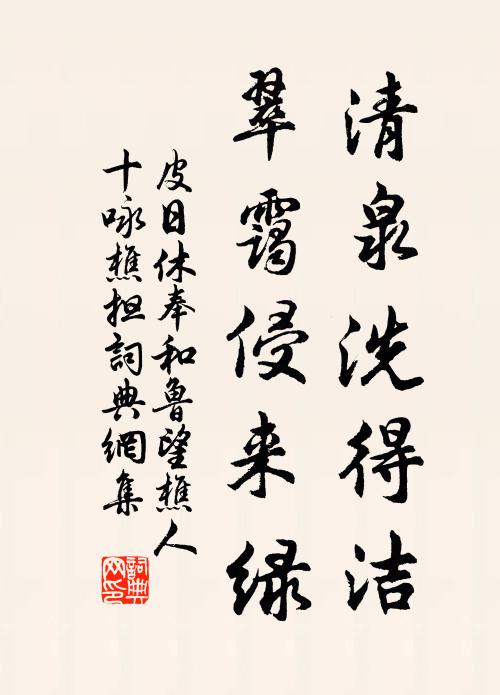 清泉洗得洁
翠霭侵来绿
皮日休奉和鲁望樵人
十咏樵担詞典網集
詞典网印